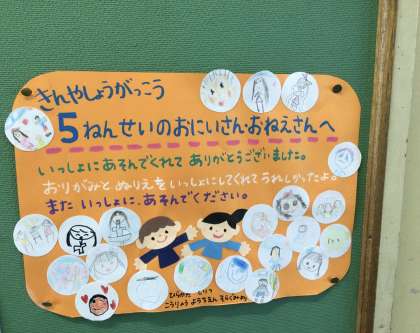 きんやしょうがっこう
5ねんせいのおにいさん・おねえさんへ
いっしょにあそんでくれて ありがとうございました。
おりがみと ぬりえをいっしょにしてくれてうれしかったよ。
また いっしょに、あそんでください。
ひらかた しりつ
こうりょう ようちえん そらぐみ